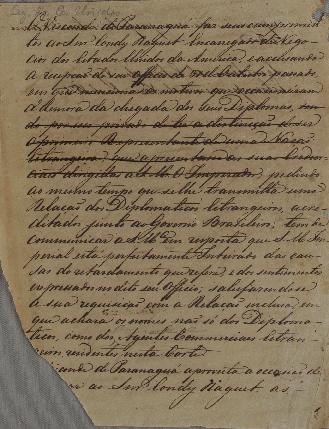 O Visconde de Paranaguá faz seus cumprimen
tos ao Snr Condy Raguet Encarregado de Nego
cios dos Estados Unidos da America, e accusando
a recepção do seu officio de passado,
em que menciona os motivos que occasionarão
a demora da chegada dos seus Diplomas,
do por isso privado de ter a distincção de ser
o primeiro Representante de uma Nação
Estrangeira que apresentasse as suas Creden
ciaes dirigidas a S. M. O Imperador, pedindo
ao mesmo tempo que se lhe transmitta uma
Relação dos Diplomaticos Estrangeiros, acre
ditados junto ao Governo Brasileiro; tem de
communicar a S. Mce em resposta que S. M. Im
perial está perfeitamente Inteirado das cau
sas do retardamento que refere, e dos sentimentos
expressados no dito seu Officio; satisfazendo-se
a sua requisição com a Relação inclusa em
que achará os nomes não só dos Diploma
ticos, como dos Agentes Commerciaes Estran
geiros residentes nesta Corte.
Visconde de Paranaguá aproveita a occasião de
ao Snr Condy Raguet as